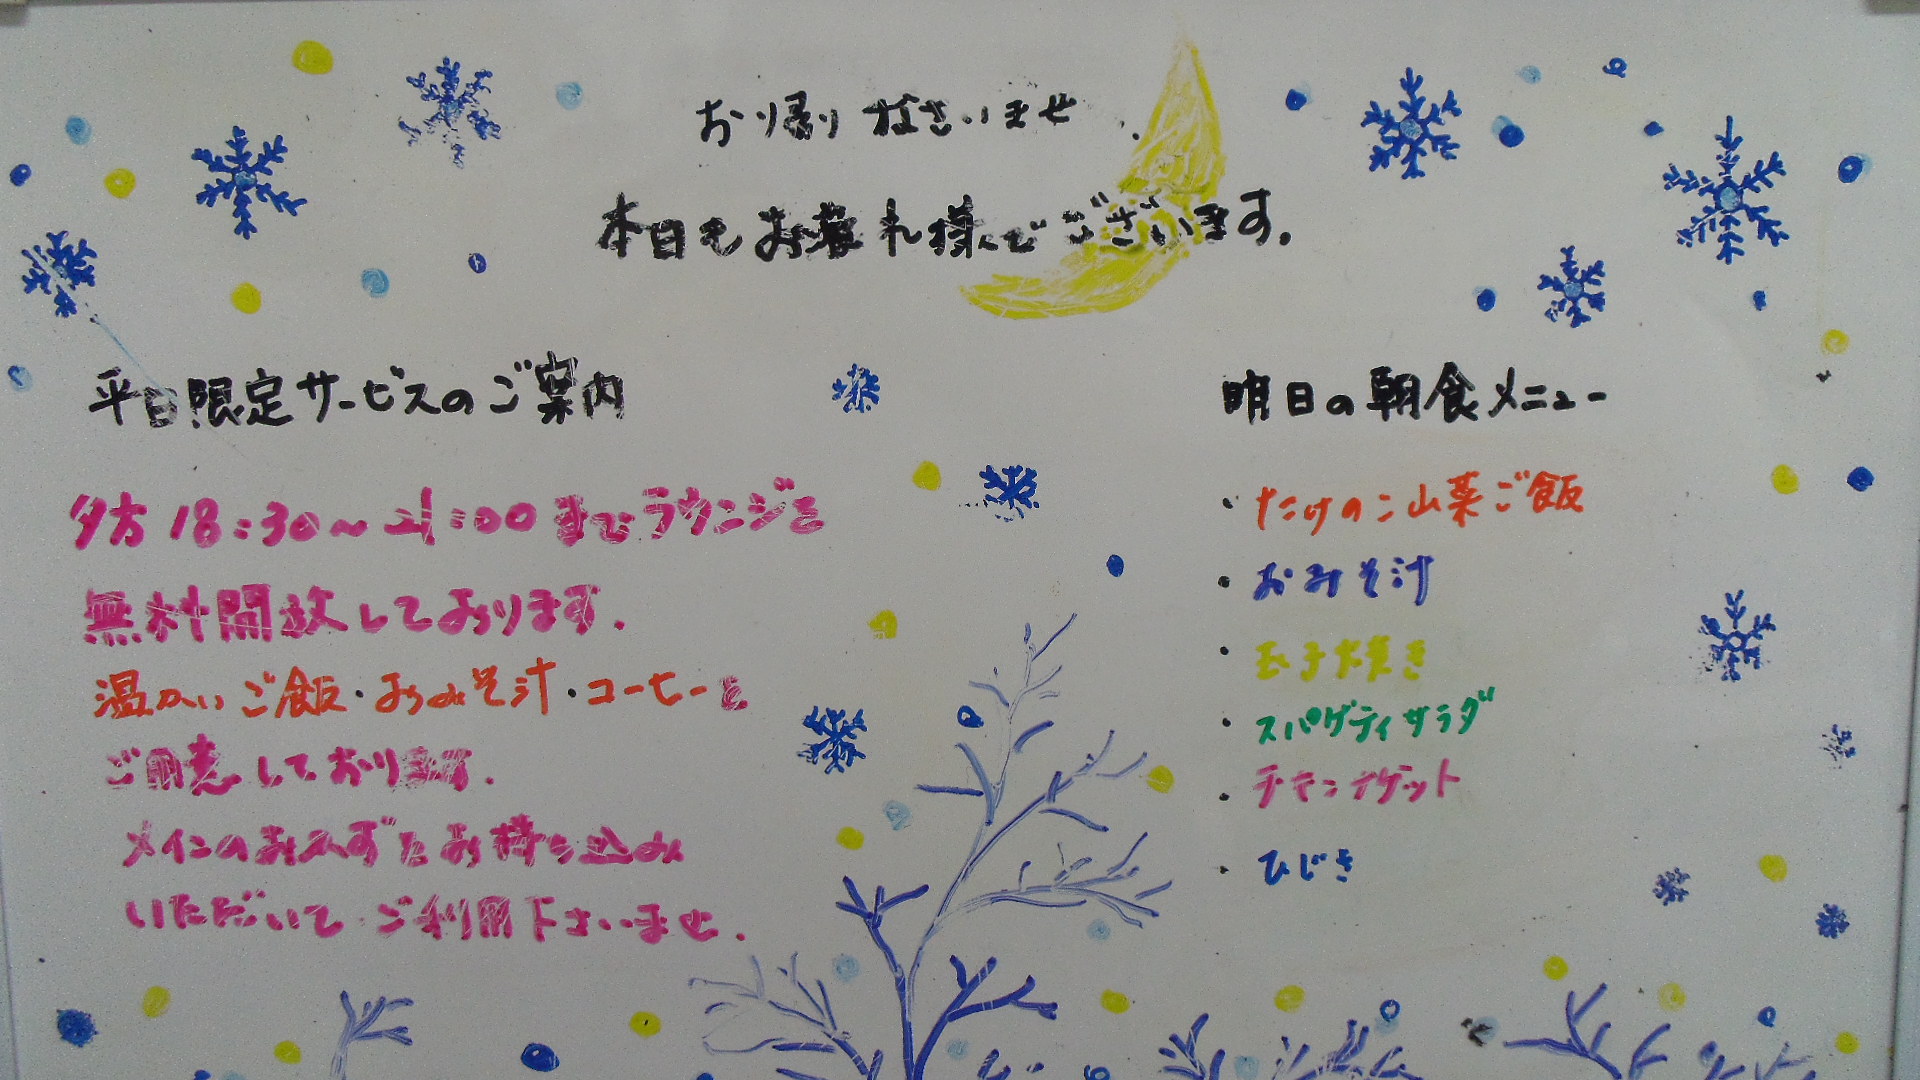 お帰りなさいませ
本日もお疲れ様でございます。
平日限定サービスのご案内
夕方18:30～21:00までラウンジを
無料開放しております.
温かいご飯・おみそ汁・コーヒーを
ご用意しております.
メインのおかずをお持ち込み
いただいてご利用下さいませ.
明日の朝食メニュー
・たけのこ山菜ご飯
・おみそ汁
・玉子焼き
・スパゲティサラダ
・チキンナゲット
・ひじき